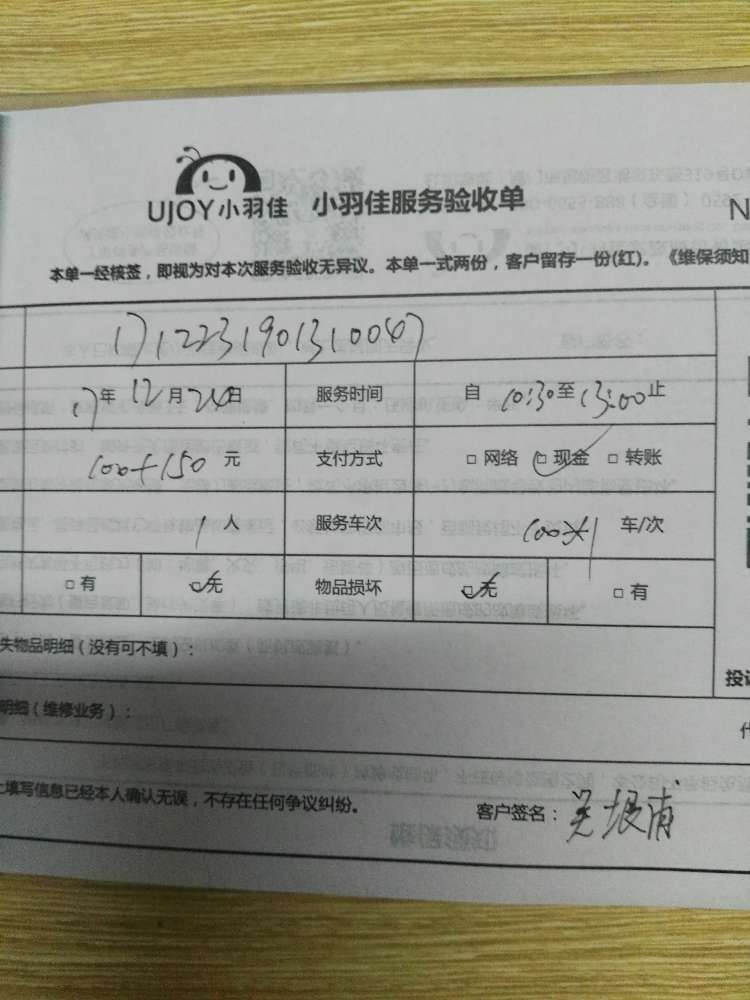 UJOY小羽佳 小羽佳服务验收单 N
本单一经核签，即视为对本次服务验收无异议。本单一式两份，客户留存一份(红)。《维保须知
1712231901310047
17年12月24日 服务时间 自10:30至13:00止
100+150元 支付方式 □网络 ☑现金 □转账
1人 服务车次 车/次
□有 ☑无 物品损坏 ☑无 □有
失物品明细（没有可不填）：
投诉
明细（维修业务）：
上填写信息已经本人确认无误，不存在任何争议纠纷。
客户签名：